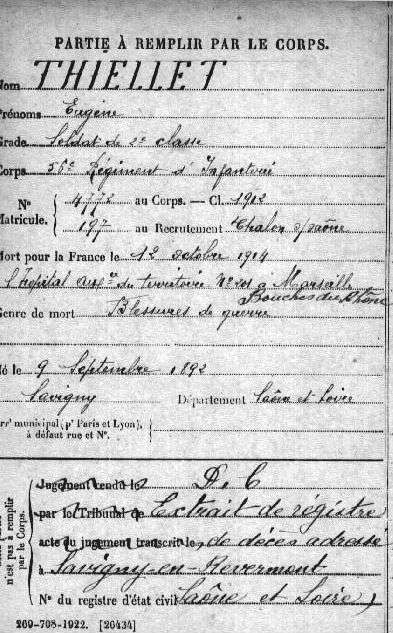 PARTIE À REMPLIR PAR LE CORPS.
Nom THIELLET
Prénoms Eugène
Grade Soldat de 2e classe
Corps 56e Régiment d'Infanterie
No Matricule. { 4772 au Corps. — Cl. 1912
197 au Recrutement Chalon s/saône
Mort pour la France le 12 octobre 1914
à l'hôpital du territoire No 101 à Marseille
Bouches du Rhône
Genre de mort Blessures de guerre
Né le 9 Septembre 1892
Savigny Département Saône et Loire
Arrt municipal (pr Paris et Lyon),
à défaut rue et No.
n'est pas à remplir
par le Corps.
Jugement rendu le D. C
par le Tribunal de Extrait de régistre
acte ou jugement transcrit le de décès adressé
à Savigny-en-Revermont
No du registre d'état civil (Saône et Loire)
269-708-1922. [26434]